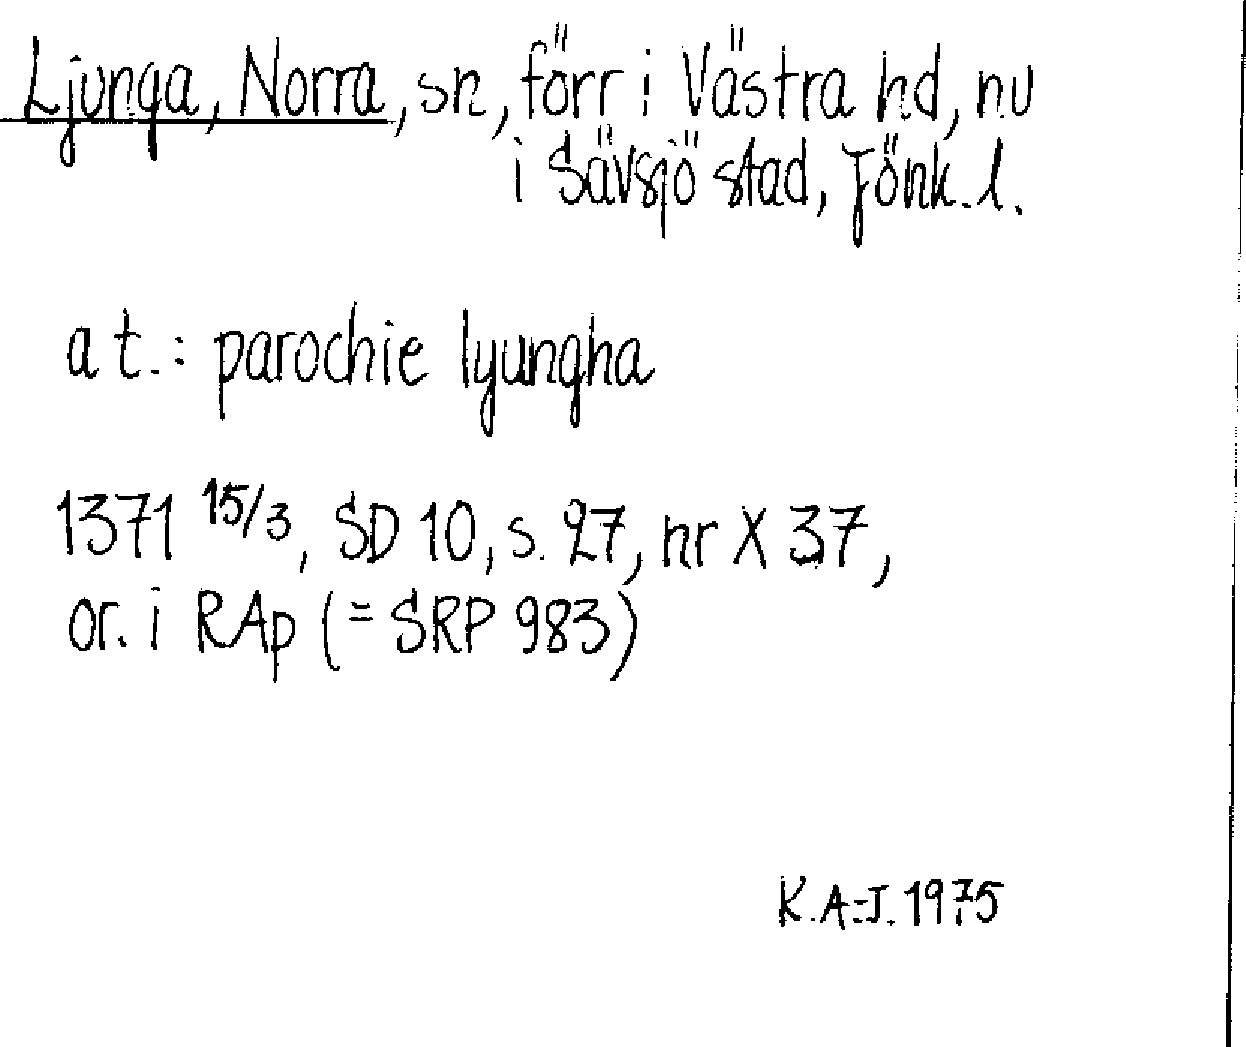 Ljunga, Norra, sn, förr i Västra hd, nu
i Sävsjö stad, Jönk. l.
a t.: parochie lyungha
1371 15/3, SD 10, s. 27, nr X 37,
or. i RAp (= SRP 983)
K. A-J. 1975